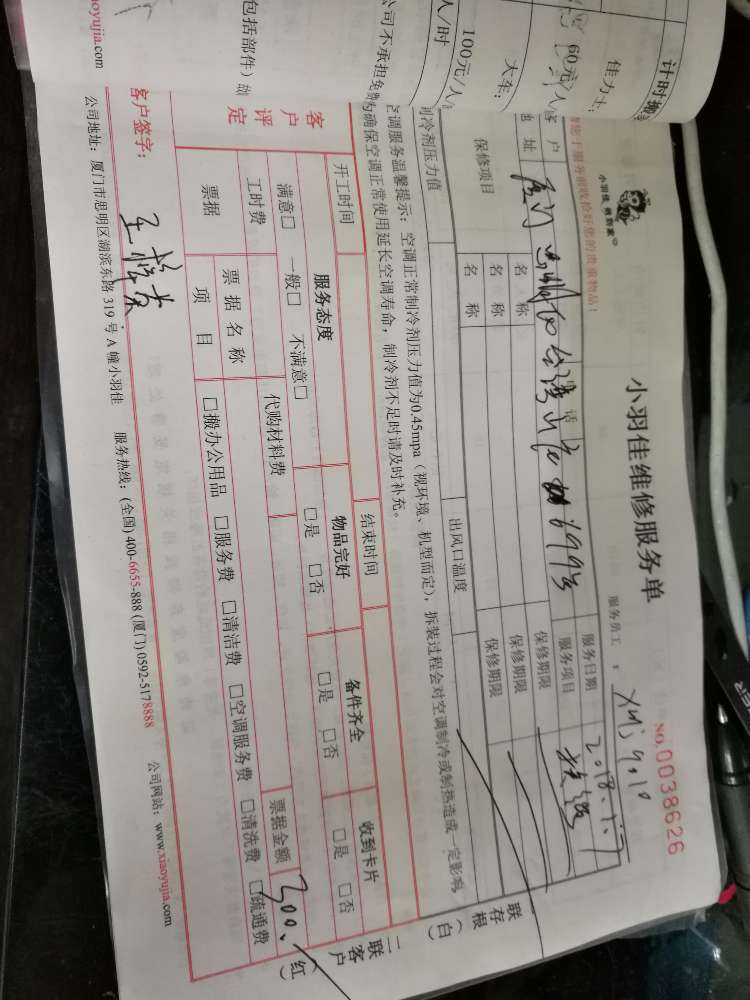 计时搬
佳力士:
60元/人
大车:
100元/人/
人/时
公司不承担免
包括部件)
小羽佳 我到家
小羽佳维修服务单
服务员工:
NO.0038626
您于服务前收检好您的贵重物品!
客户
电话
服务日期
2018.
地址
服务项目
保修项目
名称
保修期限
名称
保修期限
名称
保修期限
制冷剂压力值
出风口温度
空调服务温馨提示:空调正常制冷剂压力值为0.45mpa(视环境、机型而定),拆装过程会对空调制冷或制热造成一定影响
为确保空调正常使用延长空调寿命,制冷剂不足时请及时补充。
存根(白)
联
开工时间
结束时间
客户评定
服务态度
物品完好
备件齐全
收到卡片
满意□ 一般□ 不满意□
□是 □否
□是 □否
□是 □否
工时费
代购材料费
票据金额
300.
票据
票据名称
项目
□搬办公用品 □服务费 □清洁费 □空调服务费 □清洗费 □疏通费
二联客户(红)
客户签字:
公司地址:厦门市思明区湖滨东路 319 号 A 幢小羽佳 服务热线:(全国)400-6655-888 (厦门)0592-5178888 公司网站:www.xiaoyujia.com
aoyujia.com